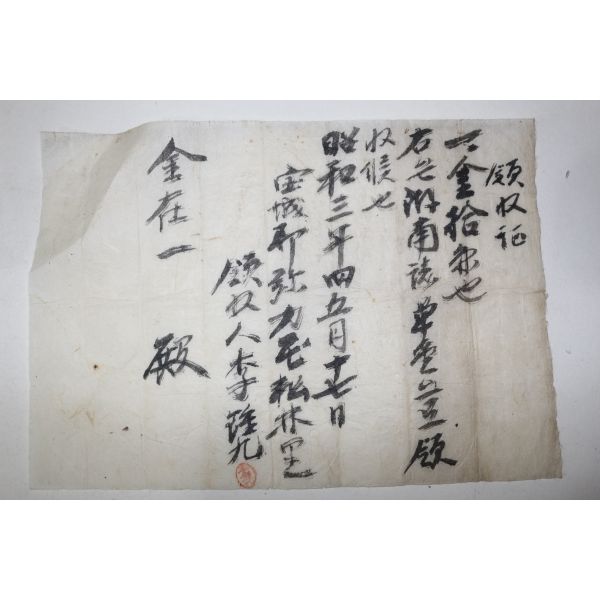 領収証
一金拾弗也
右은湖南誌單壹 領
収候也
昭和三年四五月十七日
宝城郡弥力面松林里
領収人李鍾九
金在一 殿